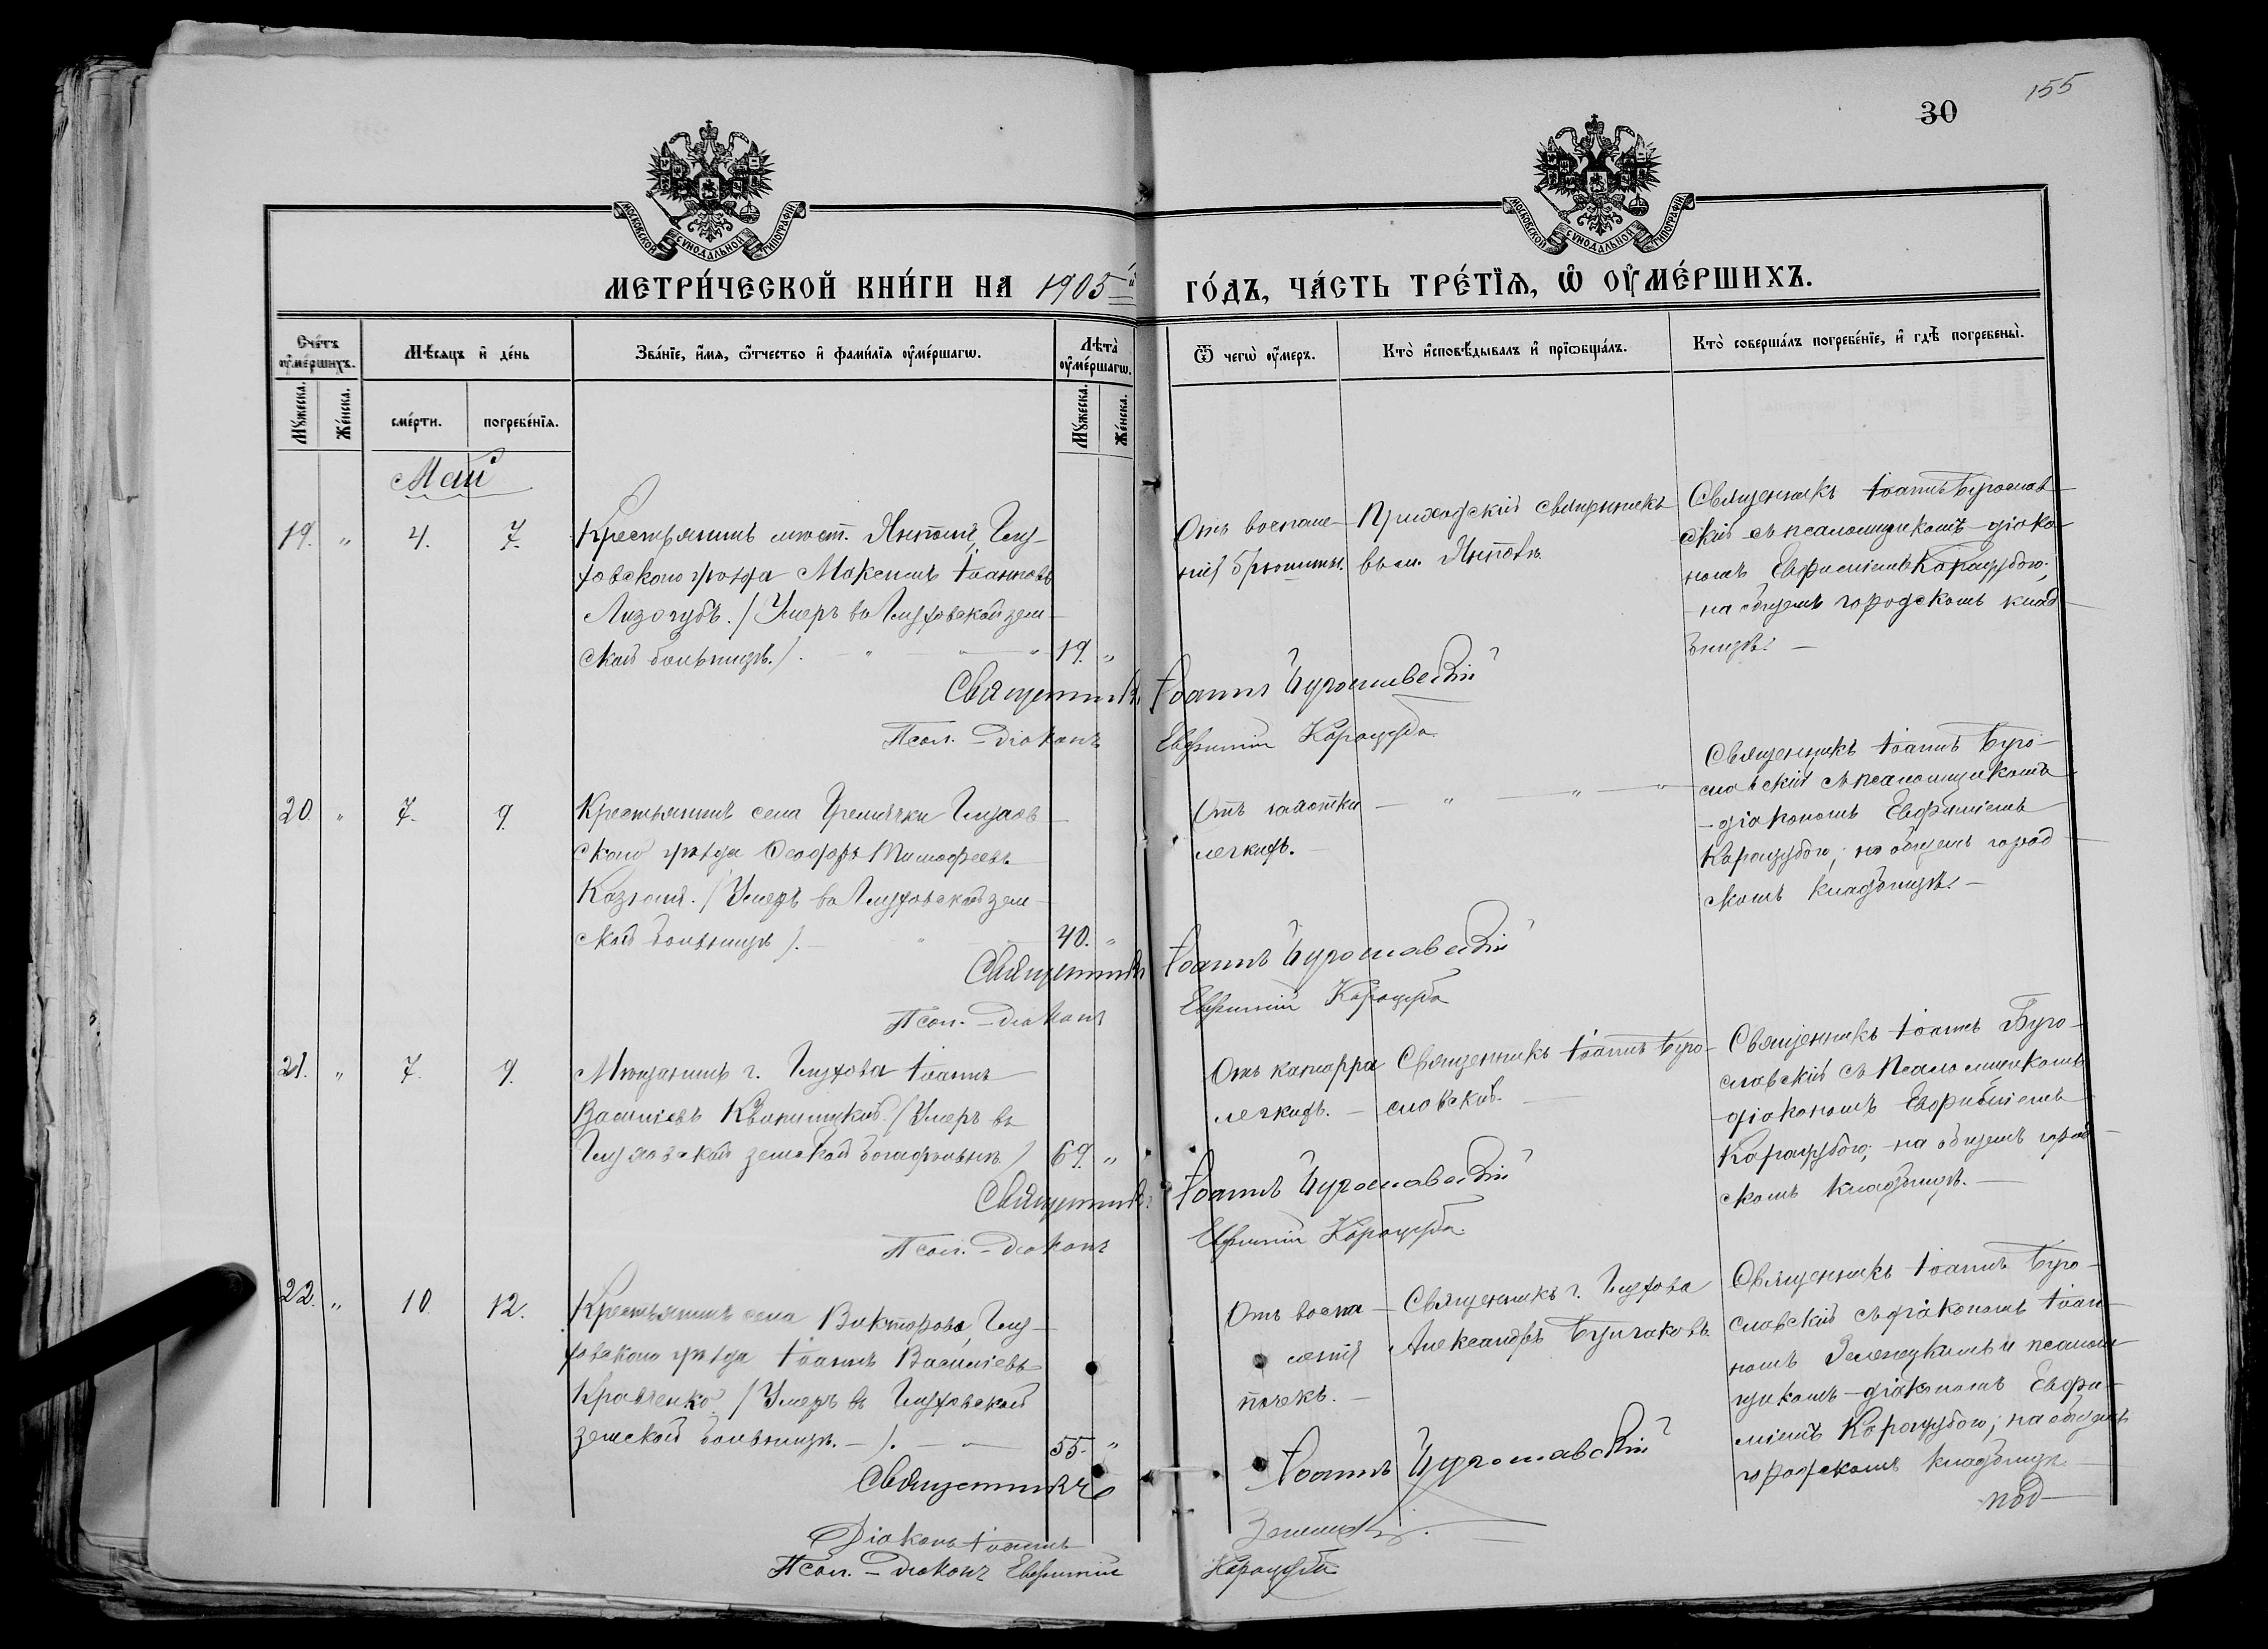 155
30
МОСКОВСКОЙ СѴНОДАЛЬНОЙ ТИПОГРАФІИ
МОСКОВСКОЙ СѴНОДАЛЬНОЙ ТИПОГРАФІИ
МЕТРИ́ЧЕСКОЙ КНИ́ГИ НА 1905й
ГО́ДЪ, ЧА́СТЬ ТРЕ́ТЇѦ, Ѡ҆ ОУ҆МЕ́РШИХЪ.
Сче́тъ оу҆ме́ршихъ.
Мѣ́сяцъ и҆ де́нь
Зва́нїе, и҆́мя, ѻ҆́тчество и҆ фами́лїя оу҆ме́ршагѡ.
Лѣта̀ оу҆ме́ршагѡ.
Ѿ чегѡ̀ оу҆́меръ.
Кто̀ и҆сповѣ́дывалъ и҆ прїѡбща́лъ.
Кто̀ соверша́лъ погребе́нїе, и҆ гдѣ̀ погребены̀.
Му́жеска.
Же́нска.
сме́рти.
погребе́нїя.
Му́жеска.
Же́нска.
Май
19. " 4. 7.
Крестьянинъ мѣст. Янполя, Глу-
ховскаго уѣзда Максимъ Іоанновъ
Лизогубъ. (Умеръ въ Глуховской зем-
ской больницѣ.). — " — " 19. "
Отъ воспале-
нія брюшины.
Приходскій священникъ
въ м. Янполѣ
Священникъ Іоаннъ Бугослав-
скій съ псаломщикомъ-діако-
номъ Евфиміемъ Карацубою;
на общемъ городскомъ клад-
бищѣ. —
Священникъ Іоаннъ Бугославскій
Псал. - Діаконъ Евфимій Карацуба
20. " 7. 9.
Крестьянинъ села Уремлячки Глухов-
скаго уѣзда Ѳеодоръ Тимофеевъ
(Умеръ въ Глуховской зем-
ской больницѣ). — " 40. "
Отъ чахотки
легкихъ. —
— " — " — "
Священникъ Іоаннъ Буго-
славскій съ псаломщикомъ
-діакономъ Евфиміемъ
Карацубою; на общемъ город-
скомъ кладбищѣ. —
Священникъ Іоаннъ Бугославскій
Псал. - Діаконъ Евфимій Карацуба
21. " 7. 9.
Мѣщанинъ г. Глухова Іоаннъ
Васильевъ Квитницкій. (Умеръ въ
Глуховской земской богадѣльнѣ.) 69. "
Отъ катарра
легкихъ. —
Священникъ Іоаннъ Буго-
славскій. —
Священникъ Іоаннъ Буго-
славскій съ псаломщикомъ
-діакономъ Евфиміемъ
Карацубою; на общемъ город-
скомъ кладбищѣ. —
Священникъ Іоаннъ Бугославскій
Псал. - Діаконъ Евфимій Карацуба
22. " 10. 12.
Крестьянинъ села Викторова, Глу-
ховскаго уѣзда Іоаннъ Васильевъ
Кравченко. (Умеръ въ Глуховской
земской больницѣ. —). — " 55. "
Отъ воспа-
ленія
почекъ. —
Священникъ г. Глухова
Александръ
Священникъ Іоаннъ Буго-
славскій съ діакономъ Іоан-
номъ Зеленецкимъ и псалом-
щикомъ-діакономъ Евфи-
міемъ Карацубою; на общемъ
городскомъ кладбищѣ. —
Священникъ Іоаннъ Бугославскій
Діаконъ Іоаннъ
Псал. - Діаконъ Евфимій Карацуба